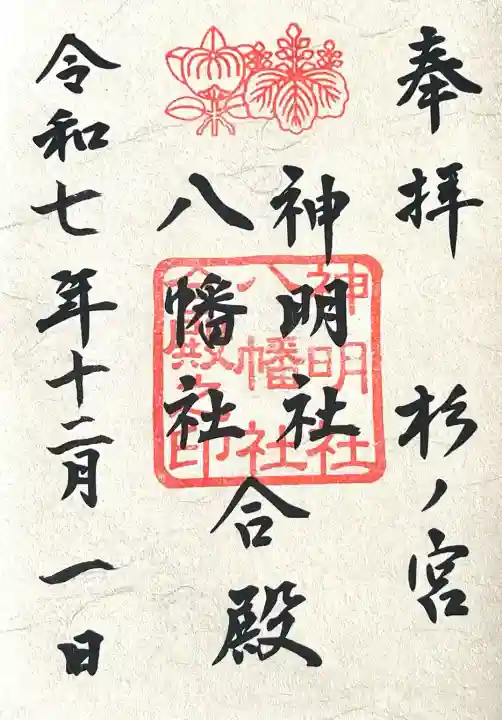 奉拝 杉ノ宮
神明社
八幡社
合殿
令和七年十二月一日
神明社
八幡社
合殿之印